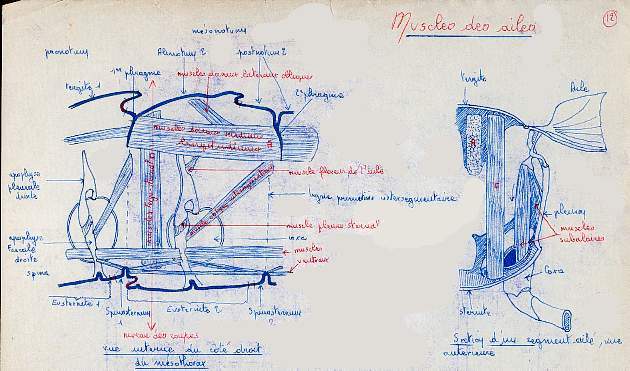 Muscles des ailes
12
mésonotum
pronotum
Alinotum 2
postnotum 2
1er phragma
muscles dorsaux latéraux obliques
2e phragma
Tergite 1
muscles dorsaux médians
longitudinaux A
apophyse
pleurale
droite
muscle fléxeur de l'aile
ligne primitive intersegmentaire
muscle pleuro sternal
apophyse
furcale
droite
coxa
muscles
ventraux
spina
Eusternite 1
Spinasternum
1
Eusternite 2
Spinasternum
2
niveau des coupes
vue interne du côté droit
du mésothorax
Tergite
Aile
A
C
pleuron
muscles
subalaires
Coxa
sternite
Section d'un segment ailé, vue
antérieure